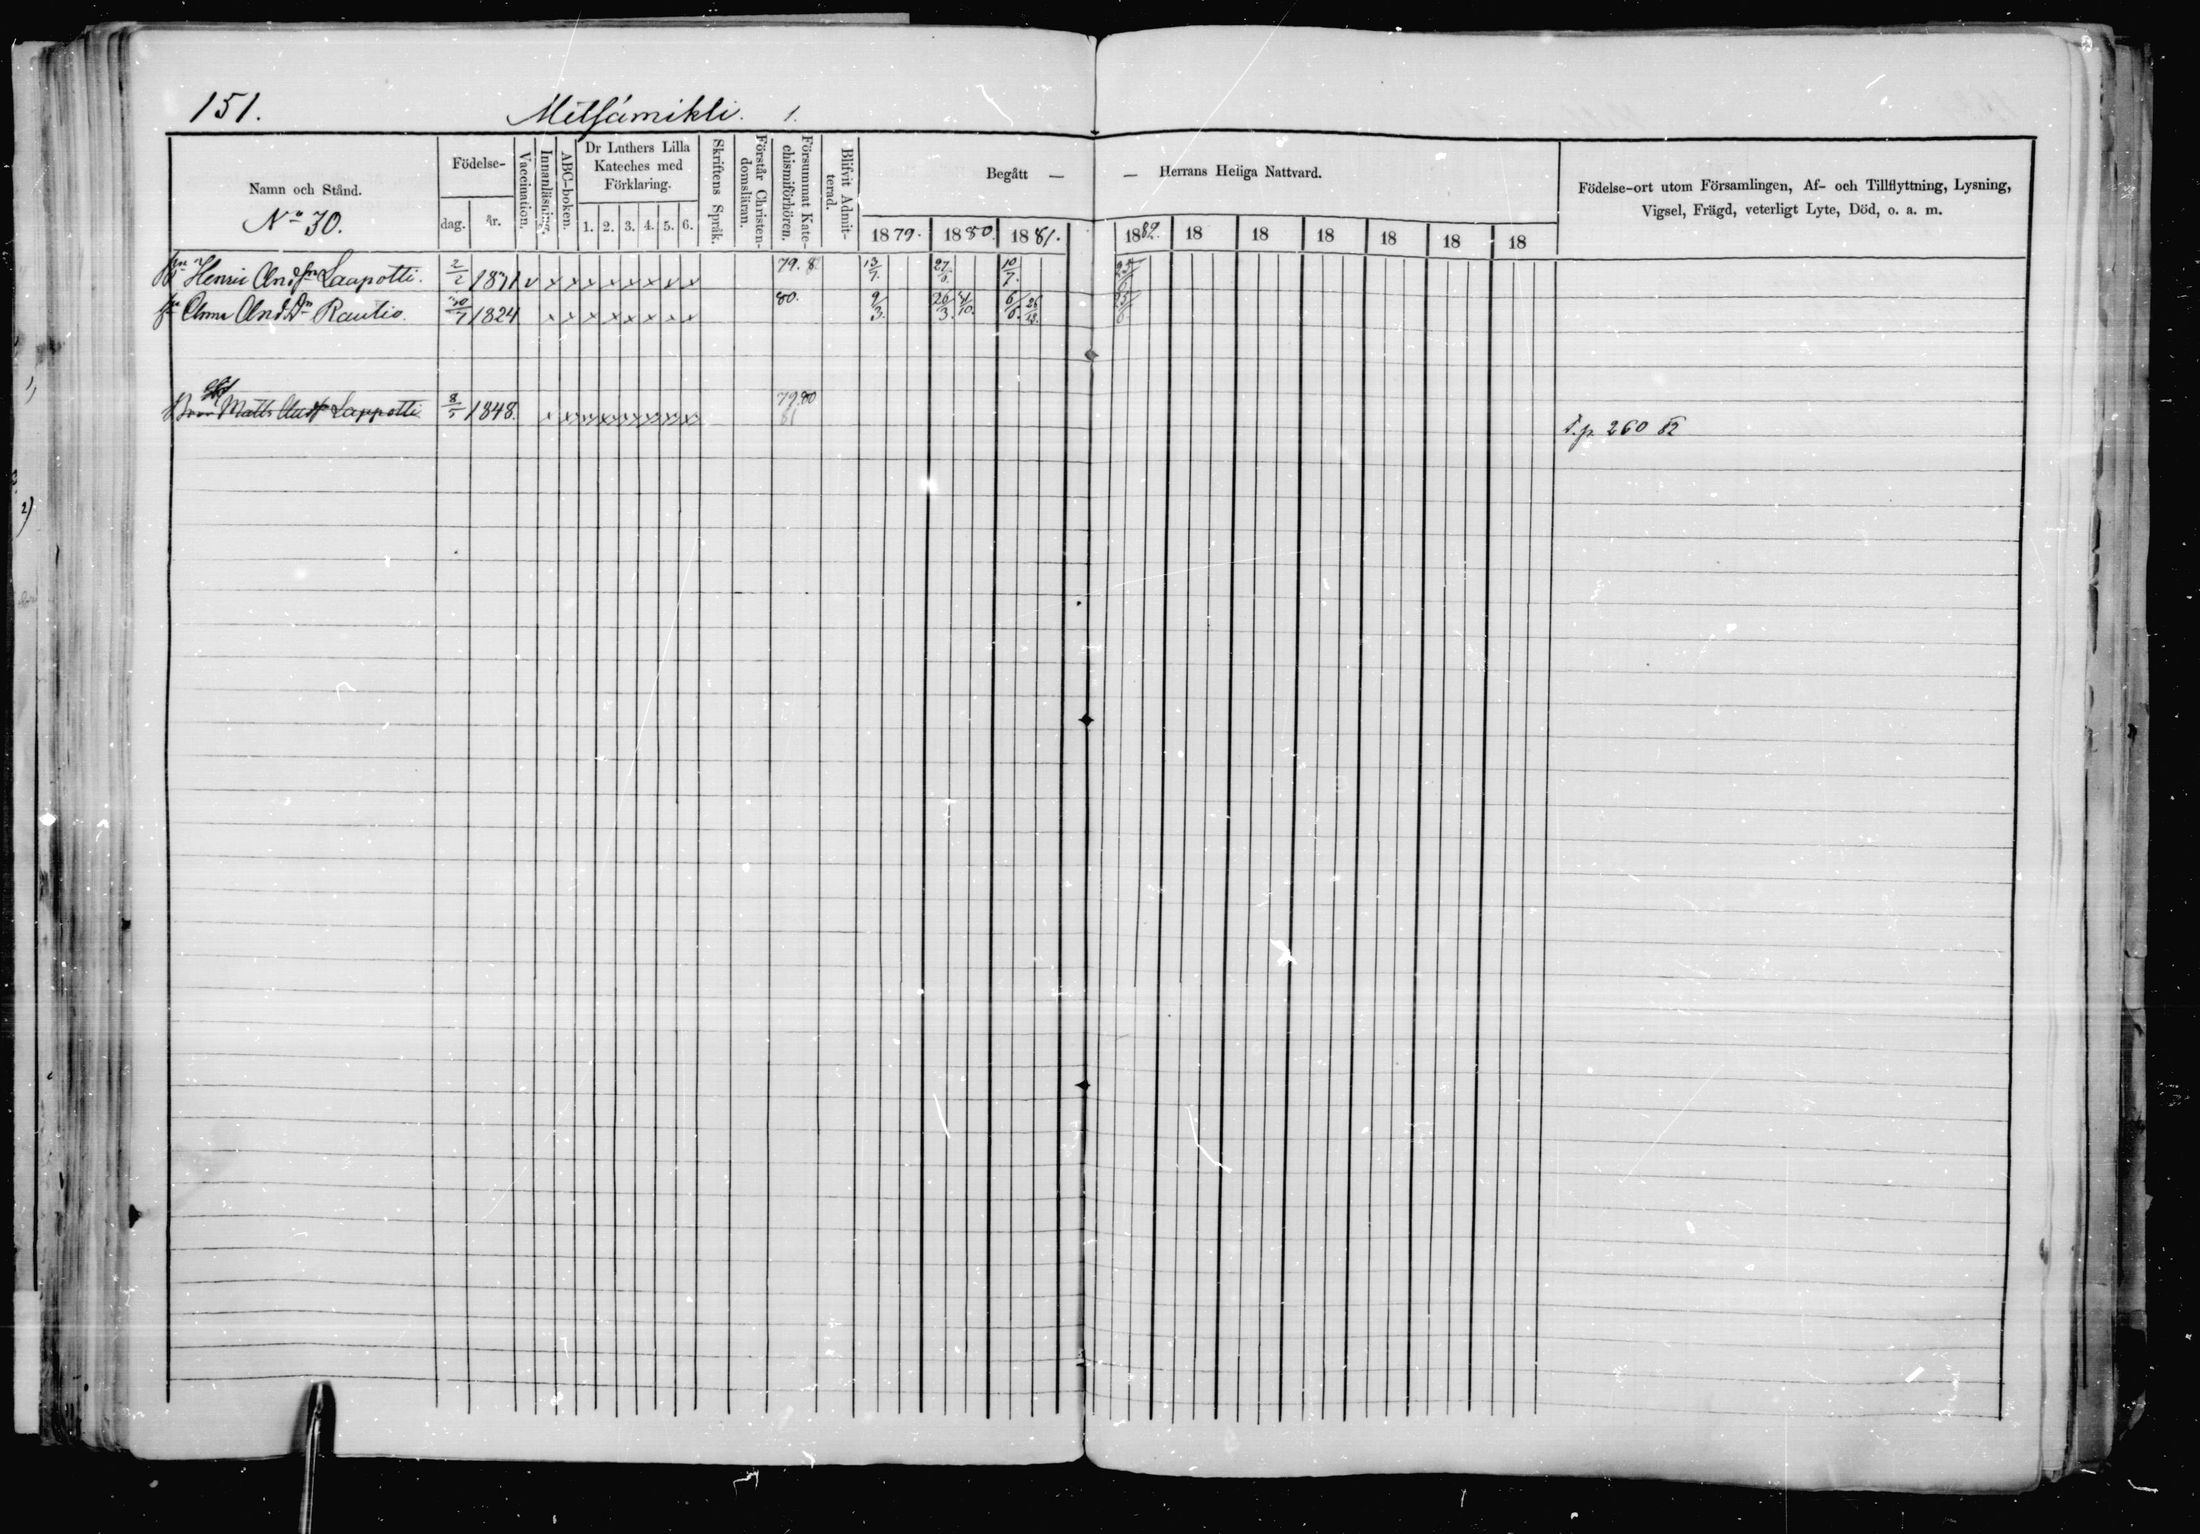 151. Metsämikli. 1.
Namn och Stånd.
No 30.
Födelse-
dag. år.
Vaccination.
Innanläsning.
ABC-boken.
Dr Luthers Lilla
Kateches med
Förklaring.
1. 2. 3. 4. 5. 6.
Skriftens Språk.
Förstår Christen-
domsläran.
Försummat Kate-
chismiförhören.
Blifvit Admit-
terad.
Begått — — Herrans Heliga Nattvard.
1879. 1880. 1881. 1882. 18 18 18 18 18 18
Födelse-ort utom Församlingen, Af- och Tillflyttning, Lysning,
Vigsel, Frägd, veterligt Lyte, Död, o. a. m.
Henric And. sn Laapotti. 2/2 v x x x x x x x x 79. 8 13/7. 27/6. 10/7.
Anna And. Dn Rautio. 1824 x x x x x x x x 80. 9/3. 26/3. 6/6. 26/12.
Matts Lappotti 1848. x x x x x x x x 79.80
81
T.p. 260 82